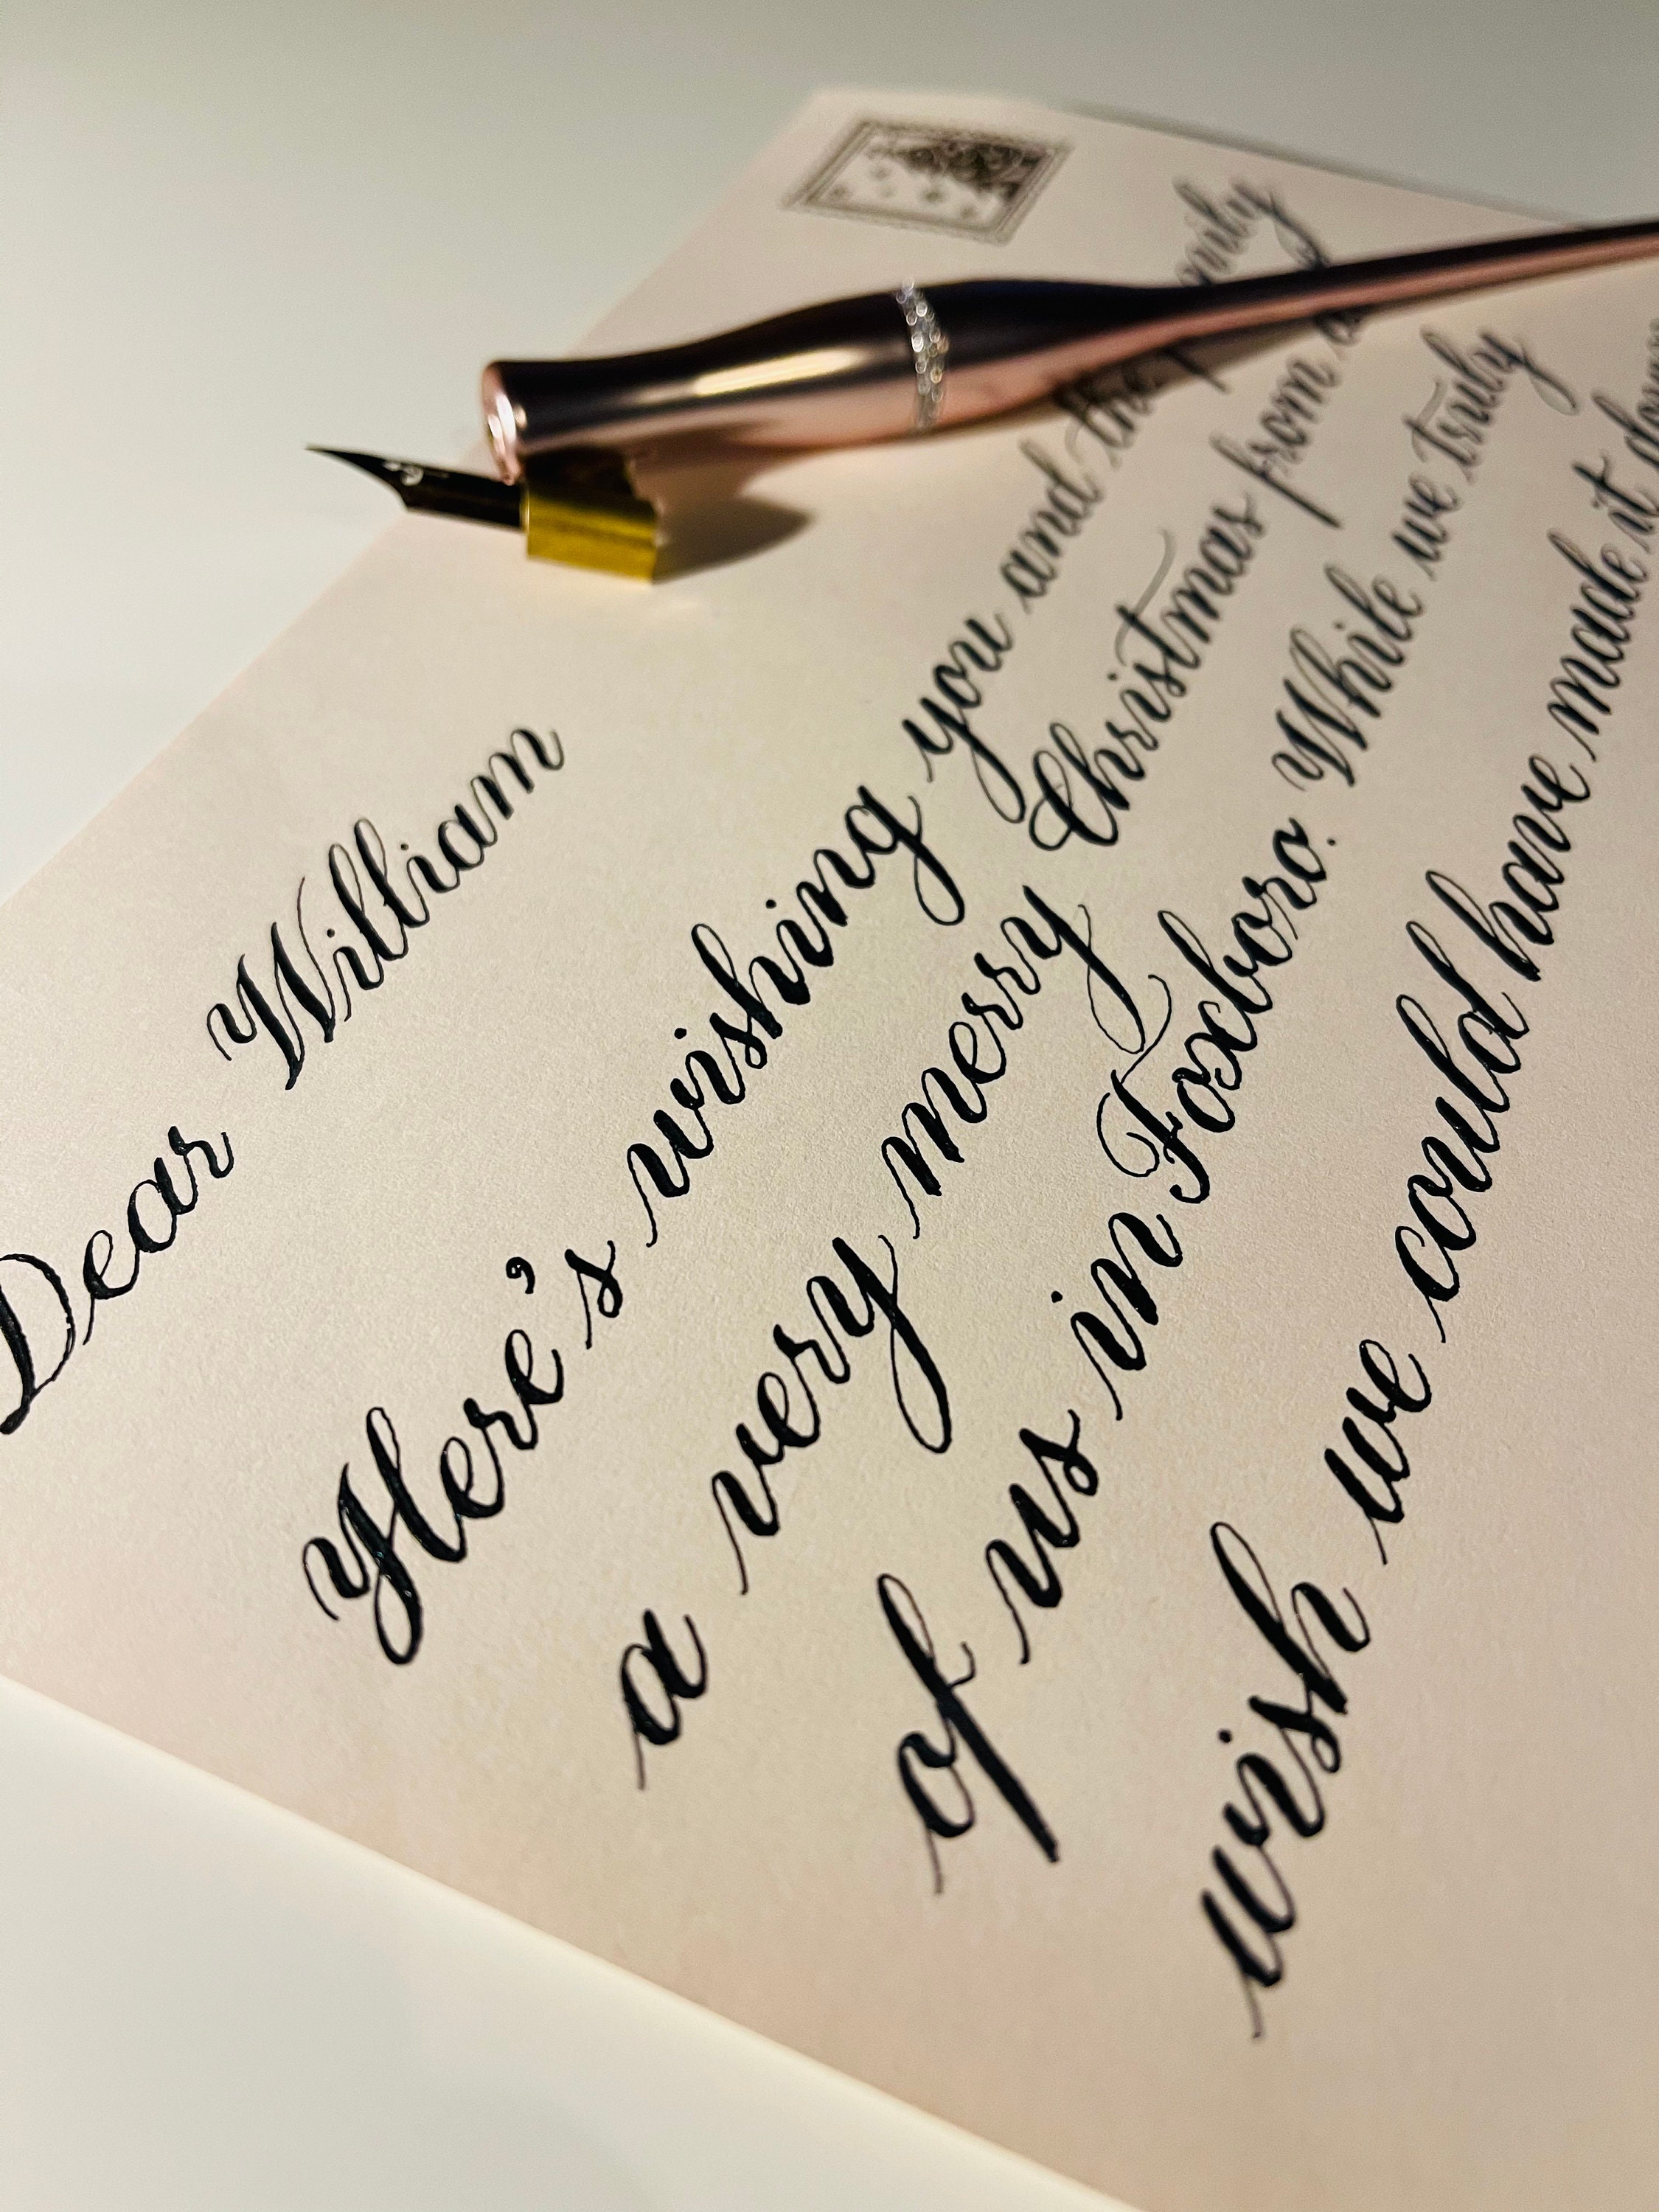 Dear William
Here's wishing you and the
a very merry Christmas from
of us in Foxboro. While we truly
wish we could have made it